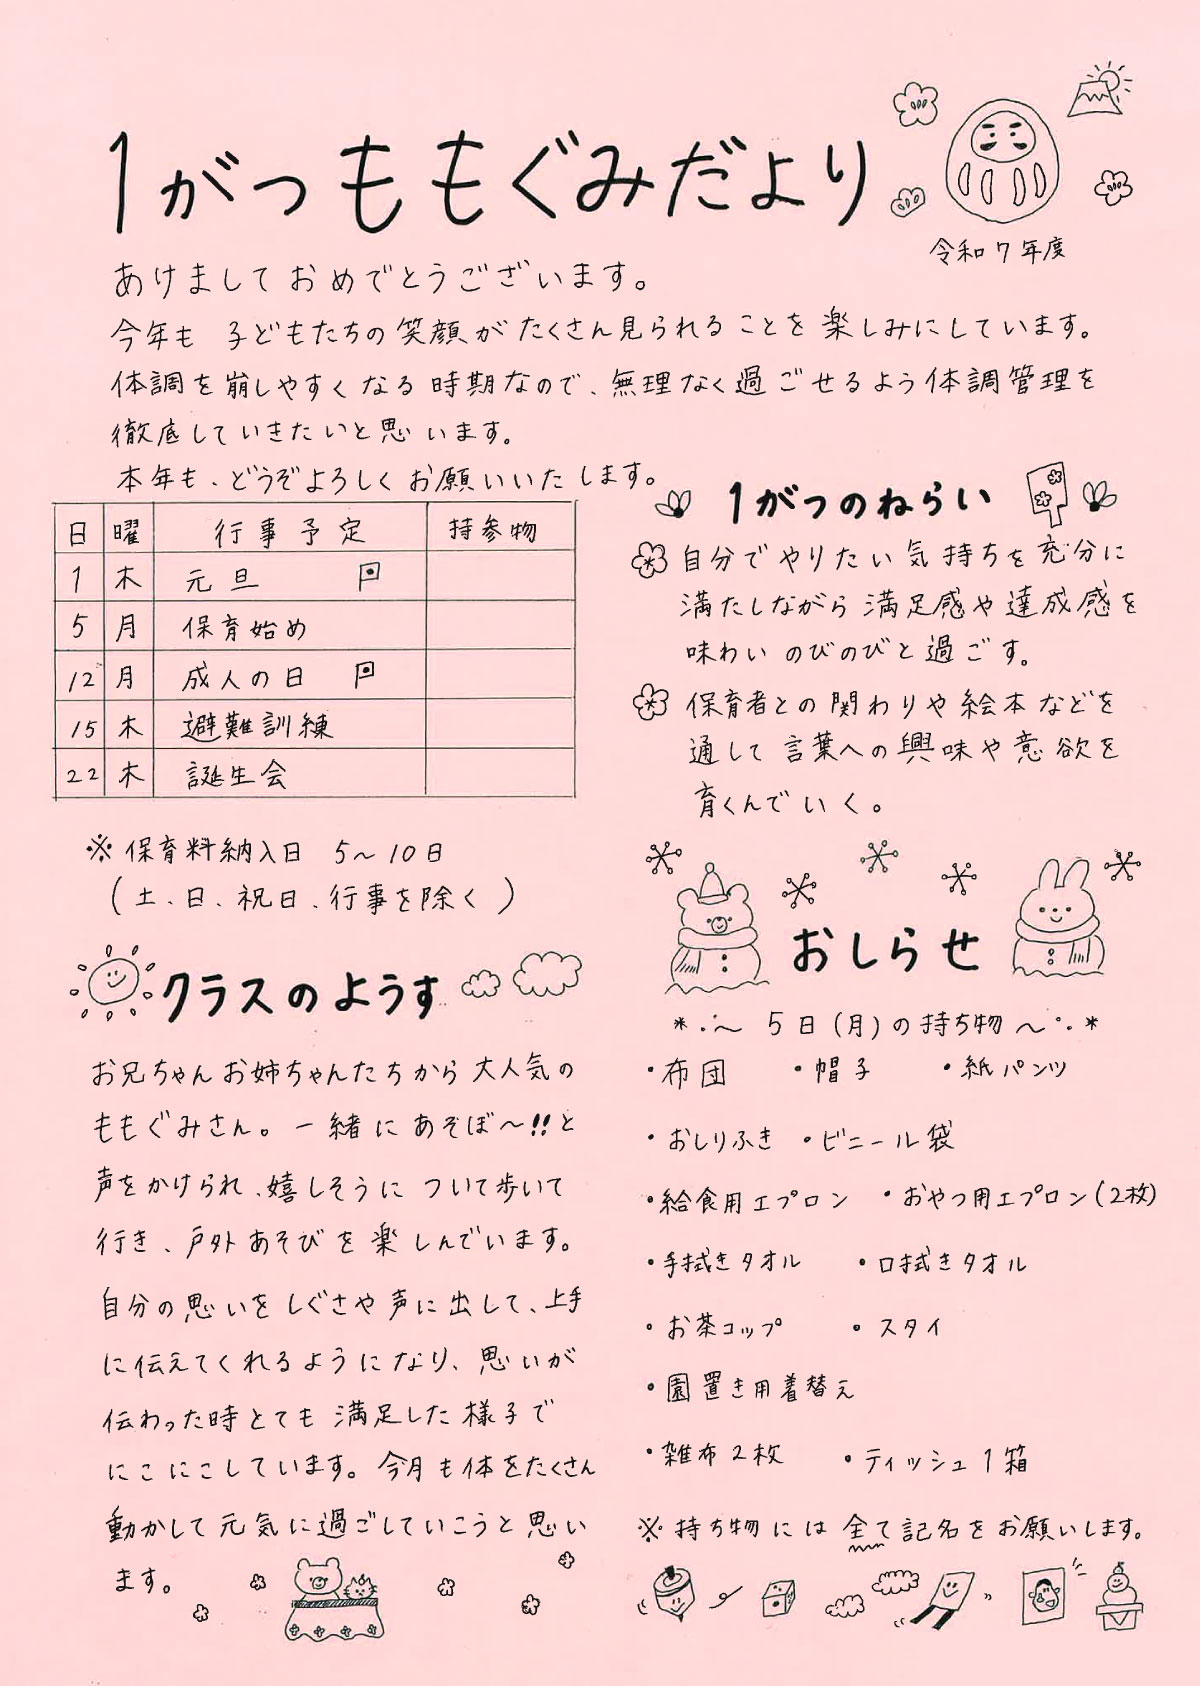 1がつももぐみだより
令和7年度
あけましておめでとうございます。
今年も 子どもたちの笑顔がたくさん見られることを楽しみにしています。
体調を崩しやすくなる時期なので、無理なく過ごせるよう体調管理を
徹底していきたいと思います。
本年も、どうぞよろしくお願いいたします。
日 曜 行事予定 持参物
1 木 元旦
5 月 保育始め
12 月 成人の日
15 木 避難訓練
22 木 誕生会
※保育料納入日 5〜10日
(土、日、祝日、行事を除く)
1がつのねらい
自分でやりたい気持ちを充分に
満たしながら満足感や達成感を
味わいのびのびと過ごす。
保育者との関わりや絵本などを
通して言葉への興味や意欲を
育くんでいく。
クラスのようす
お兄ちゃんお姉ちゃんたちから大人気の
ももぐみさん。一緒にあそぼ〜!!と
声をかけられ、嬉しそうについて歩いて
行き、戸外あそびを楽しんでいます。
自分の思いをしぐさや声に出して、上手
に伝えてくれるようになり、思いが
伝わった時とても満足した様子で
にこにこしています。今月も体をたくさん
動かして元気に過ごしていこうと思い
ます。
おしらせ
*・〜 5日(月)の持ち物 〜・*
・布団 ・帽子 ・紙パンツ
・おしりふき ・ビニール袋
・給食用エプロン ・おやつ用エプロン(2枚)
・手拭きタオル ・口拭きタオル
・お茶コップ ・スタイ
・園置き用着替え
・雑布2枚 ・ティッシュ1箱
※持ち物には全て記名をお願いします。